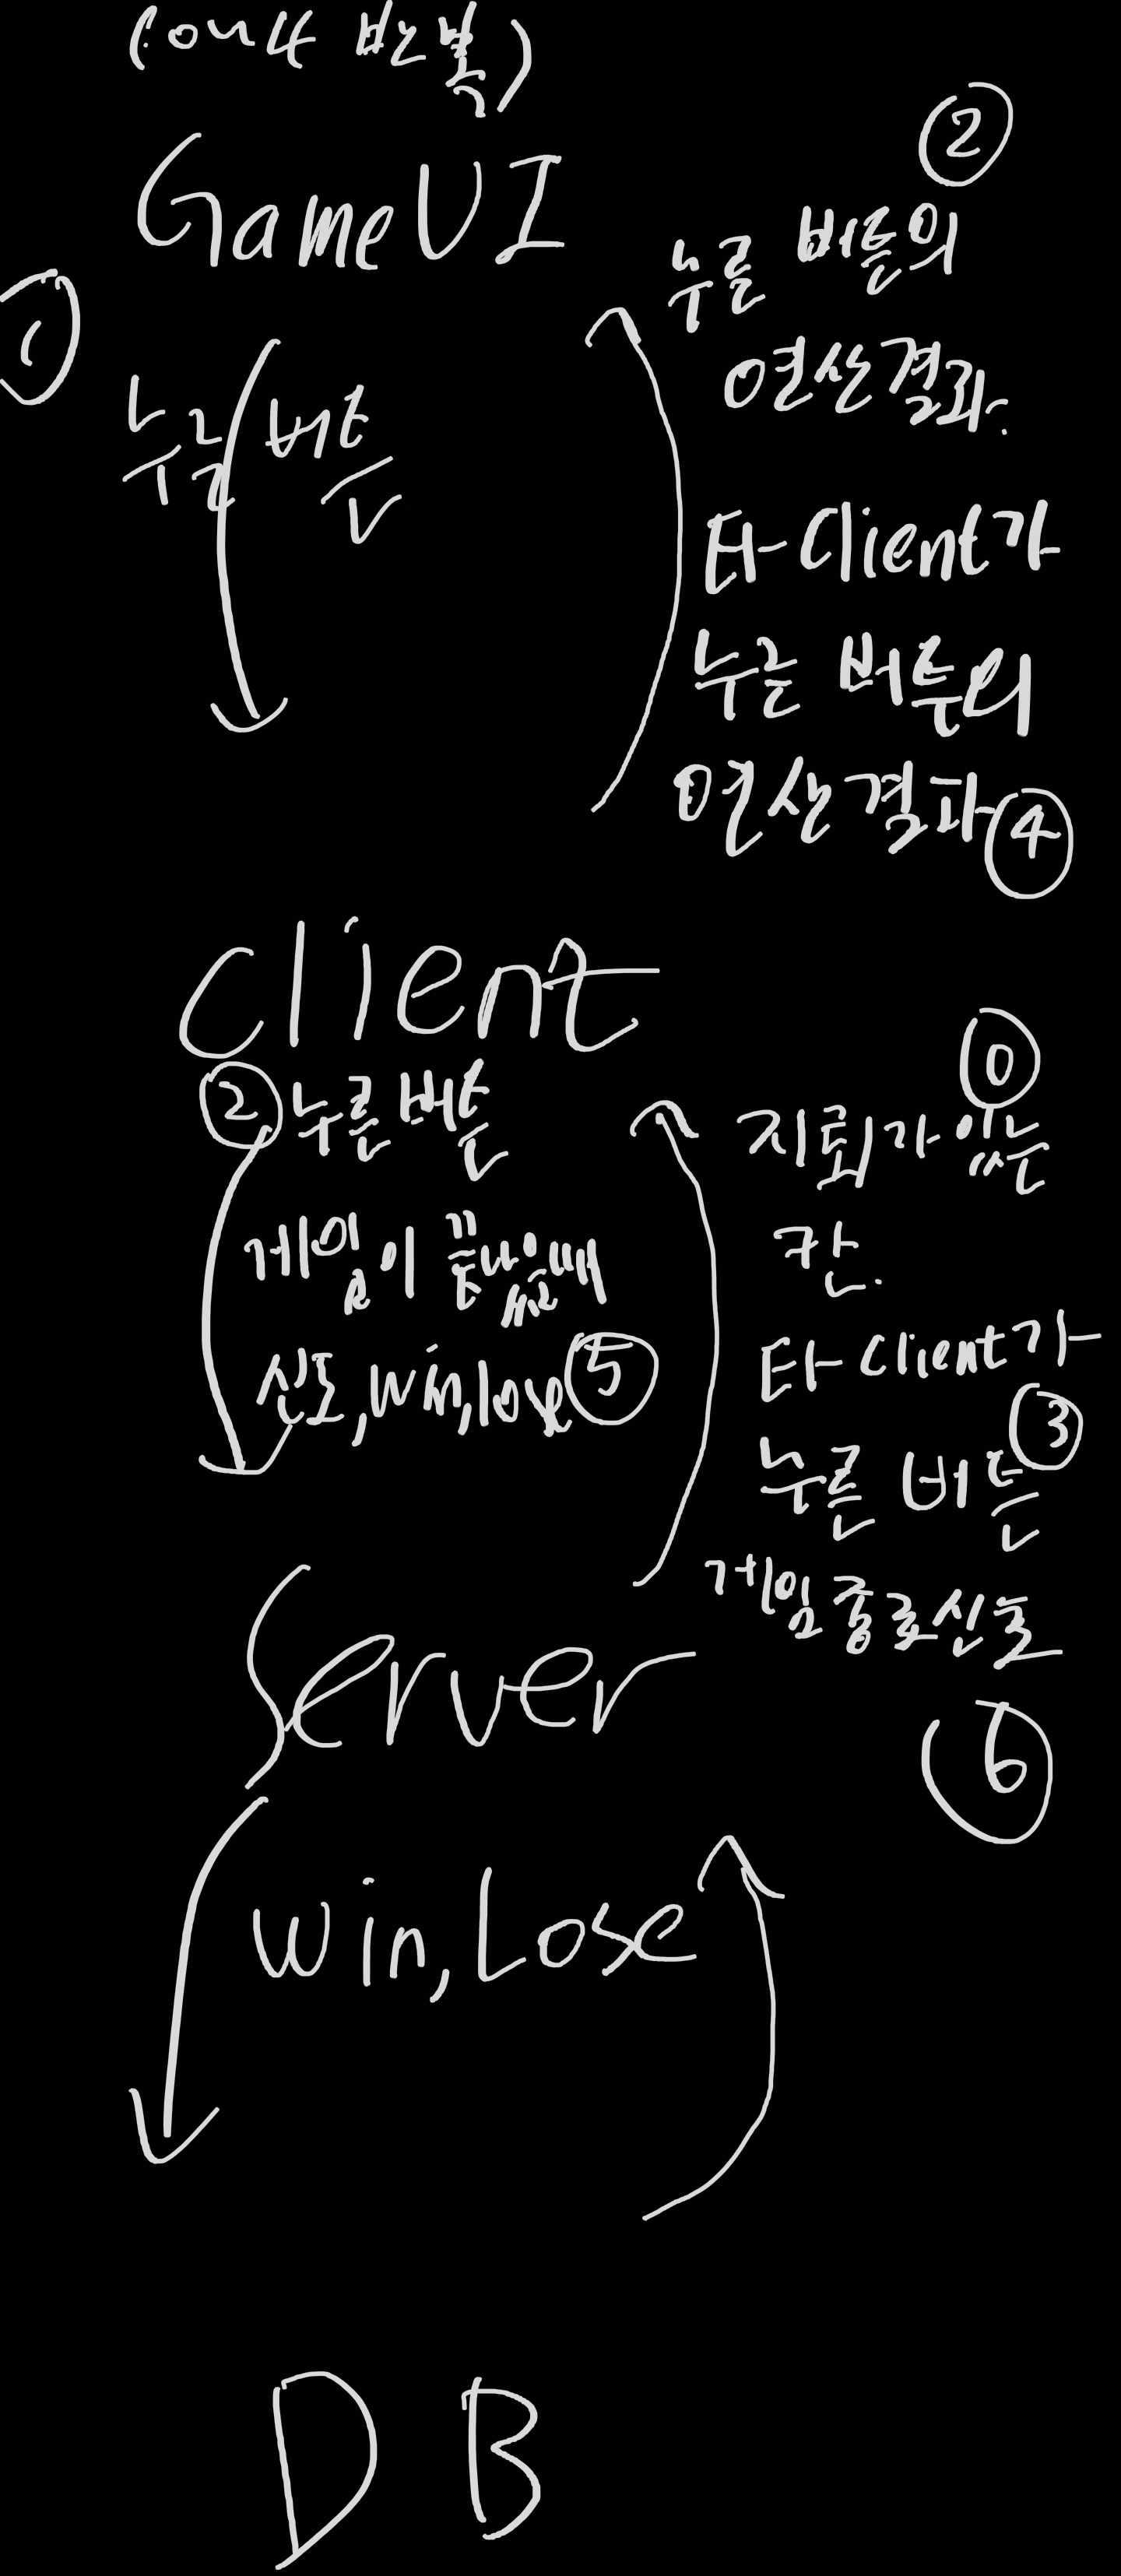 (0~4 반복)
GameUI
①
누른 버튼
②
누른 버튼의
연산결과.
타 Client가
누른 버튼의
연산결과 ④
Client
② 누른 버튼
게임이 끝났을때
신호, win, lose ⑤
⓪
지뢰가 있는
칸.
타 Client가
누른 버튼 ③
게임 종료 신호
⑥
Server
Win, Lose
DB